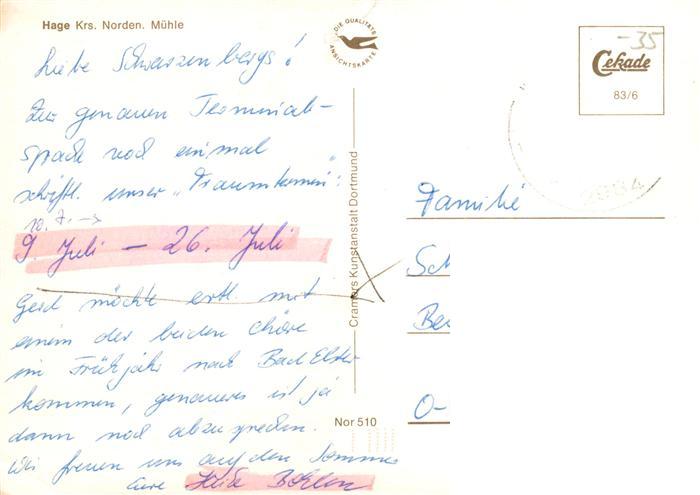 Hage Krs. Norden. Mühle
DIE QUALITÄTS
ANSICHTSKARTE
-35
Cekade
83/6
Liebe Schwarzenbergs!
Zur genauen Terminab-
sprache noch einmal
schriftl. unser "Traumtermin":
10. 7. →
9. Juli — 26. Juli
Gerd möchte evtl. mit
einem der beiden Chöre
im Frühjahr nach Bad Elster
kommen, genaueres ist ja
dann noch abzusprechen.
Wir freuen uns auf den Sommer
Eure
Cramers Kunstanstalt Dortmund
Nor 510
Familie
Sch
Be
O-